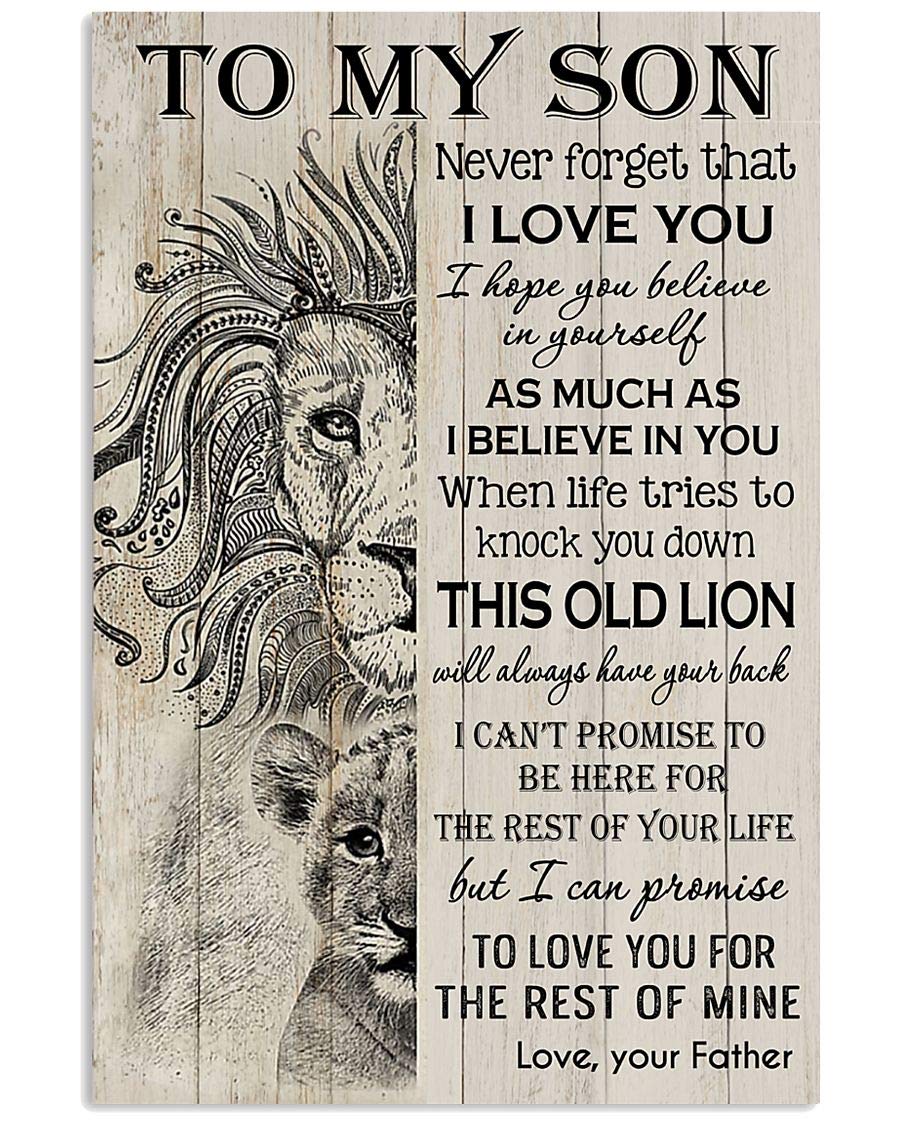 TO MY SON
Never forget that
I LOVE YOU
I hope you believe
in yourself
AS MUCH AS
I BELIEVE IN YOU
When life tries to
knock you down
THIS OLD LION
will always have your back
I CAN'T PROMISE TO
BE HERE FOR
THE REST OF YOUR LIFE
but I can promise
TO LOVE YOU FOR
THE REST OF MINE
Love, your Father